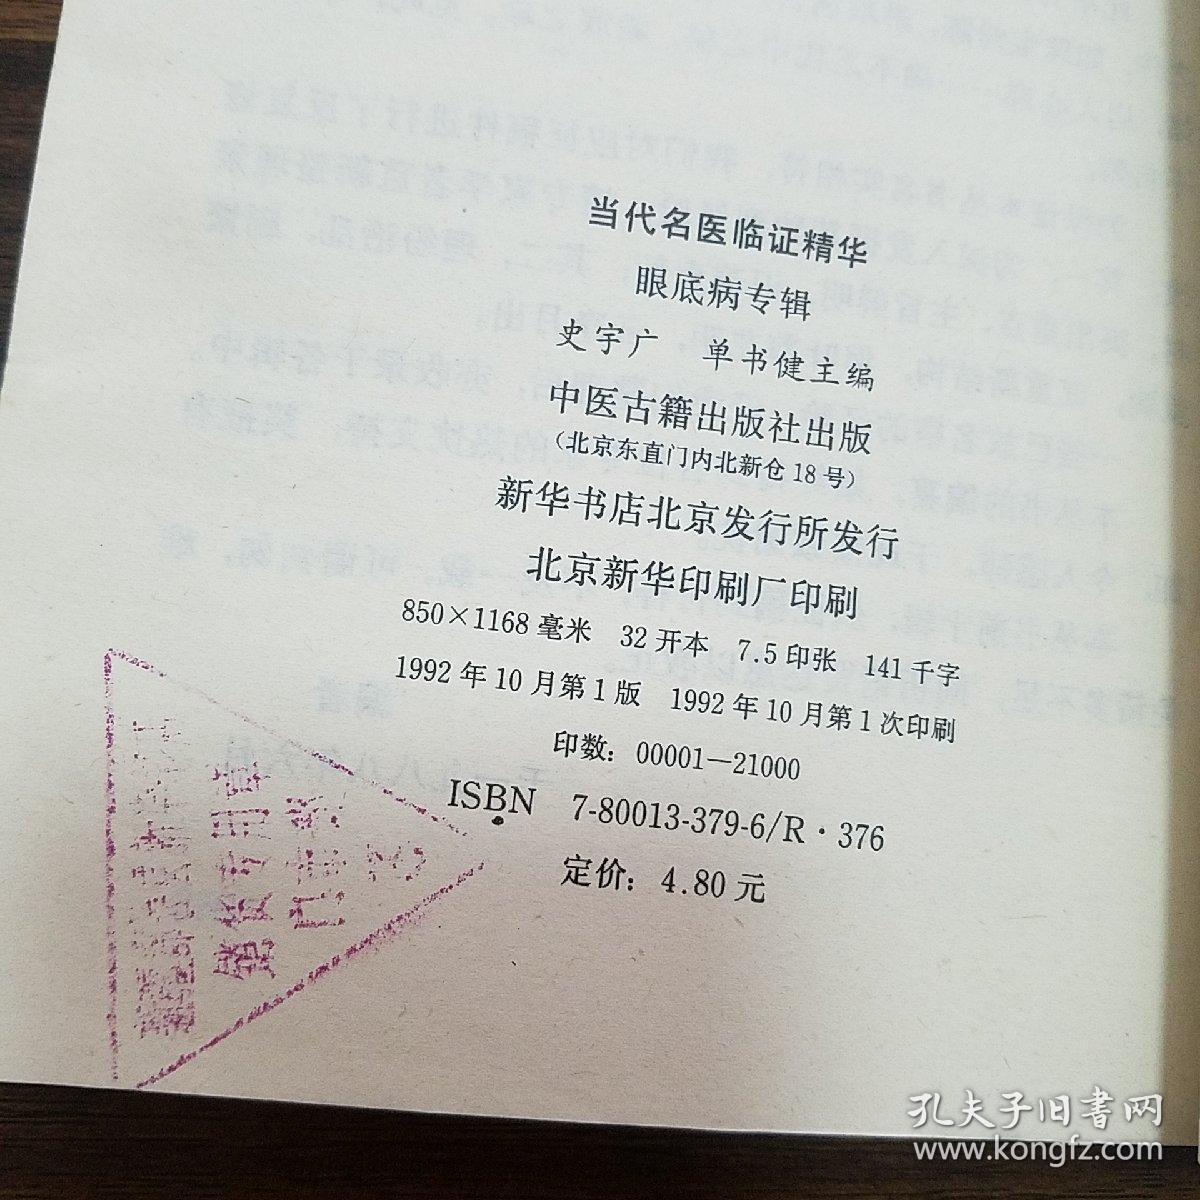 当代名医临证精华
眼底病专辑
史宇广 单书健主编
中医古籍出版社出版
（北京东直门内北新仓18号）
新华书店北京发行所发行
北京新华印刷厂印刷
850×1168毫米 32开本 7.5印张 141千字
1992年10月第1版 1992年10月第1次印刷
印数：00001—21000
ISBN 7-80013-379-6/R·376
定价：4.80元
孔夫子旧书网
www.kongfz.com